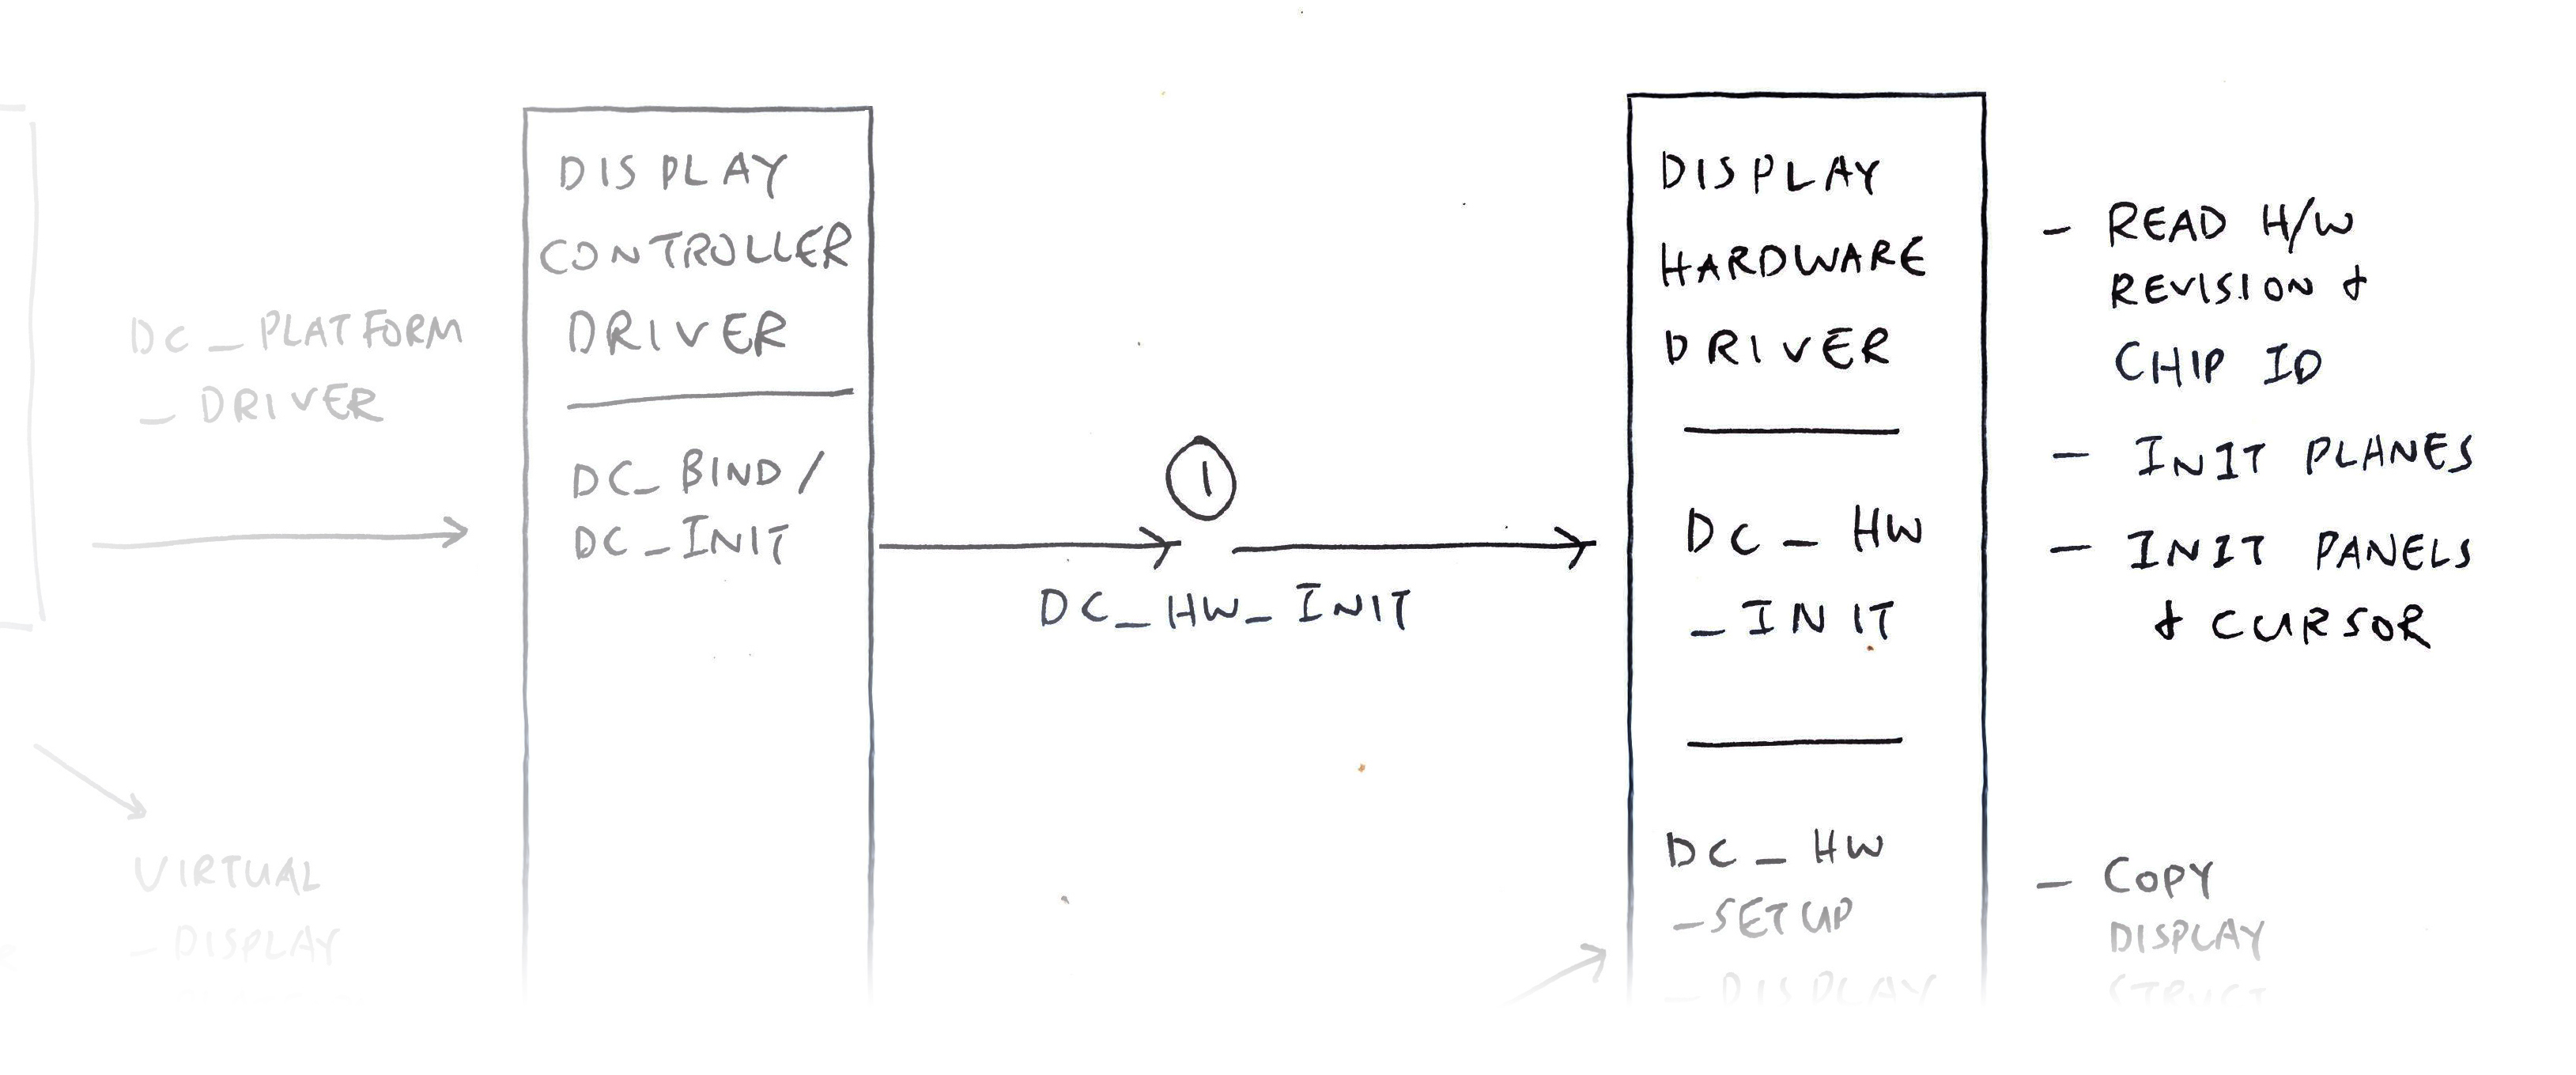 DC_PLATFORM
_DRIVER
VIRTUAL
_DISPLAY
DISPLAY
CONTROLLER
DRIVER
DC_BIND/
DC_INIT
1
DC_HW_INIT
DISPLAY
HARDWARE
DRIVER
DC_HW
_INIT
DC_HW
_SETUP
_DISPLAY
- READ H/W
REVISION &
CHIP ID
- INIT PLANES
- INIT PANELS
& CURSOR
- COPY
DISPLAY
STRUCT